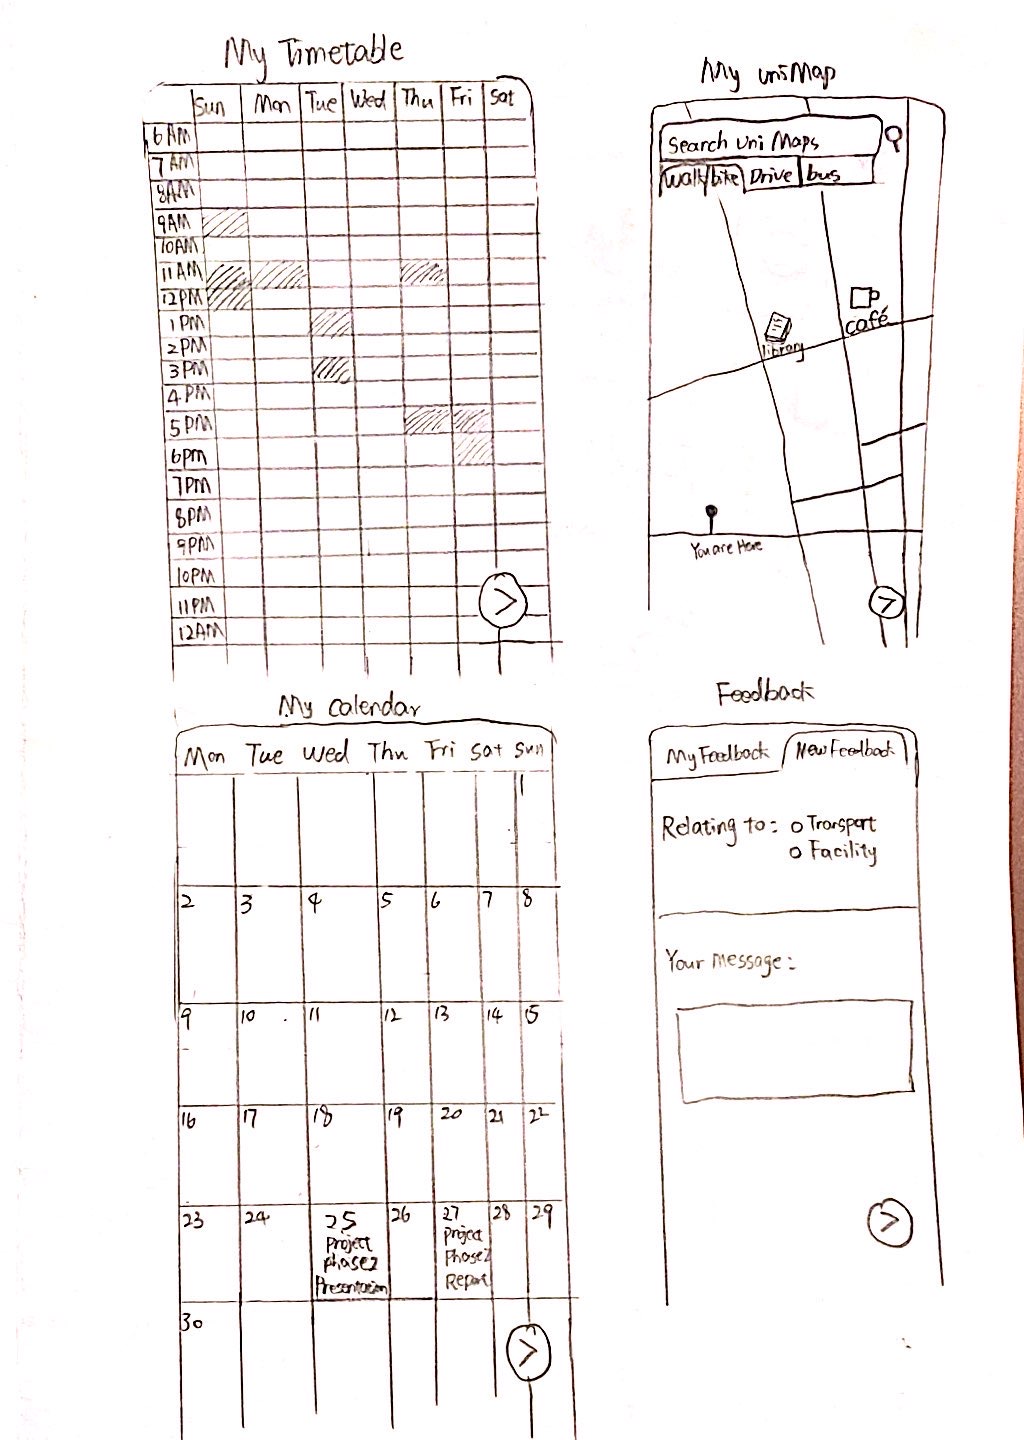 My Timetable
Sun Mon Tue Wed Thu Fri Sat
6 AM
7 AM
8AM
9AM
10AM
11 AM
12PM
1 PM
2PM
3 PM
4 PM
5 PM
6pm
7PM
8PM
9PM
10PM
11PM
12AM
>
My uniMap
Search Uni Maps
Walk/bike Drive bus
café
library
You are Here
>
My calendar
Mon Tue Wed Thu Fri Sat Sun
1
2 3 4 5 6 7 8
9 10 11 12 13 14 15
16 17 18 19 20 21 22
23 24 25 26 27 28 29
Project
phase2
Presentation
Project
Phase2
Report
30
>
Feedback
My Feedback New Feedback
Relating to: o Transport
o Facility
Your message:
>